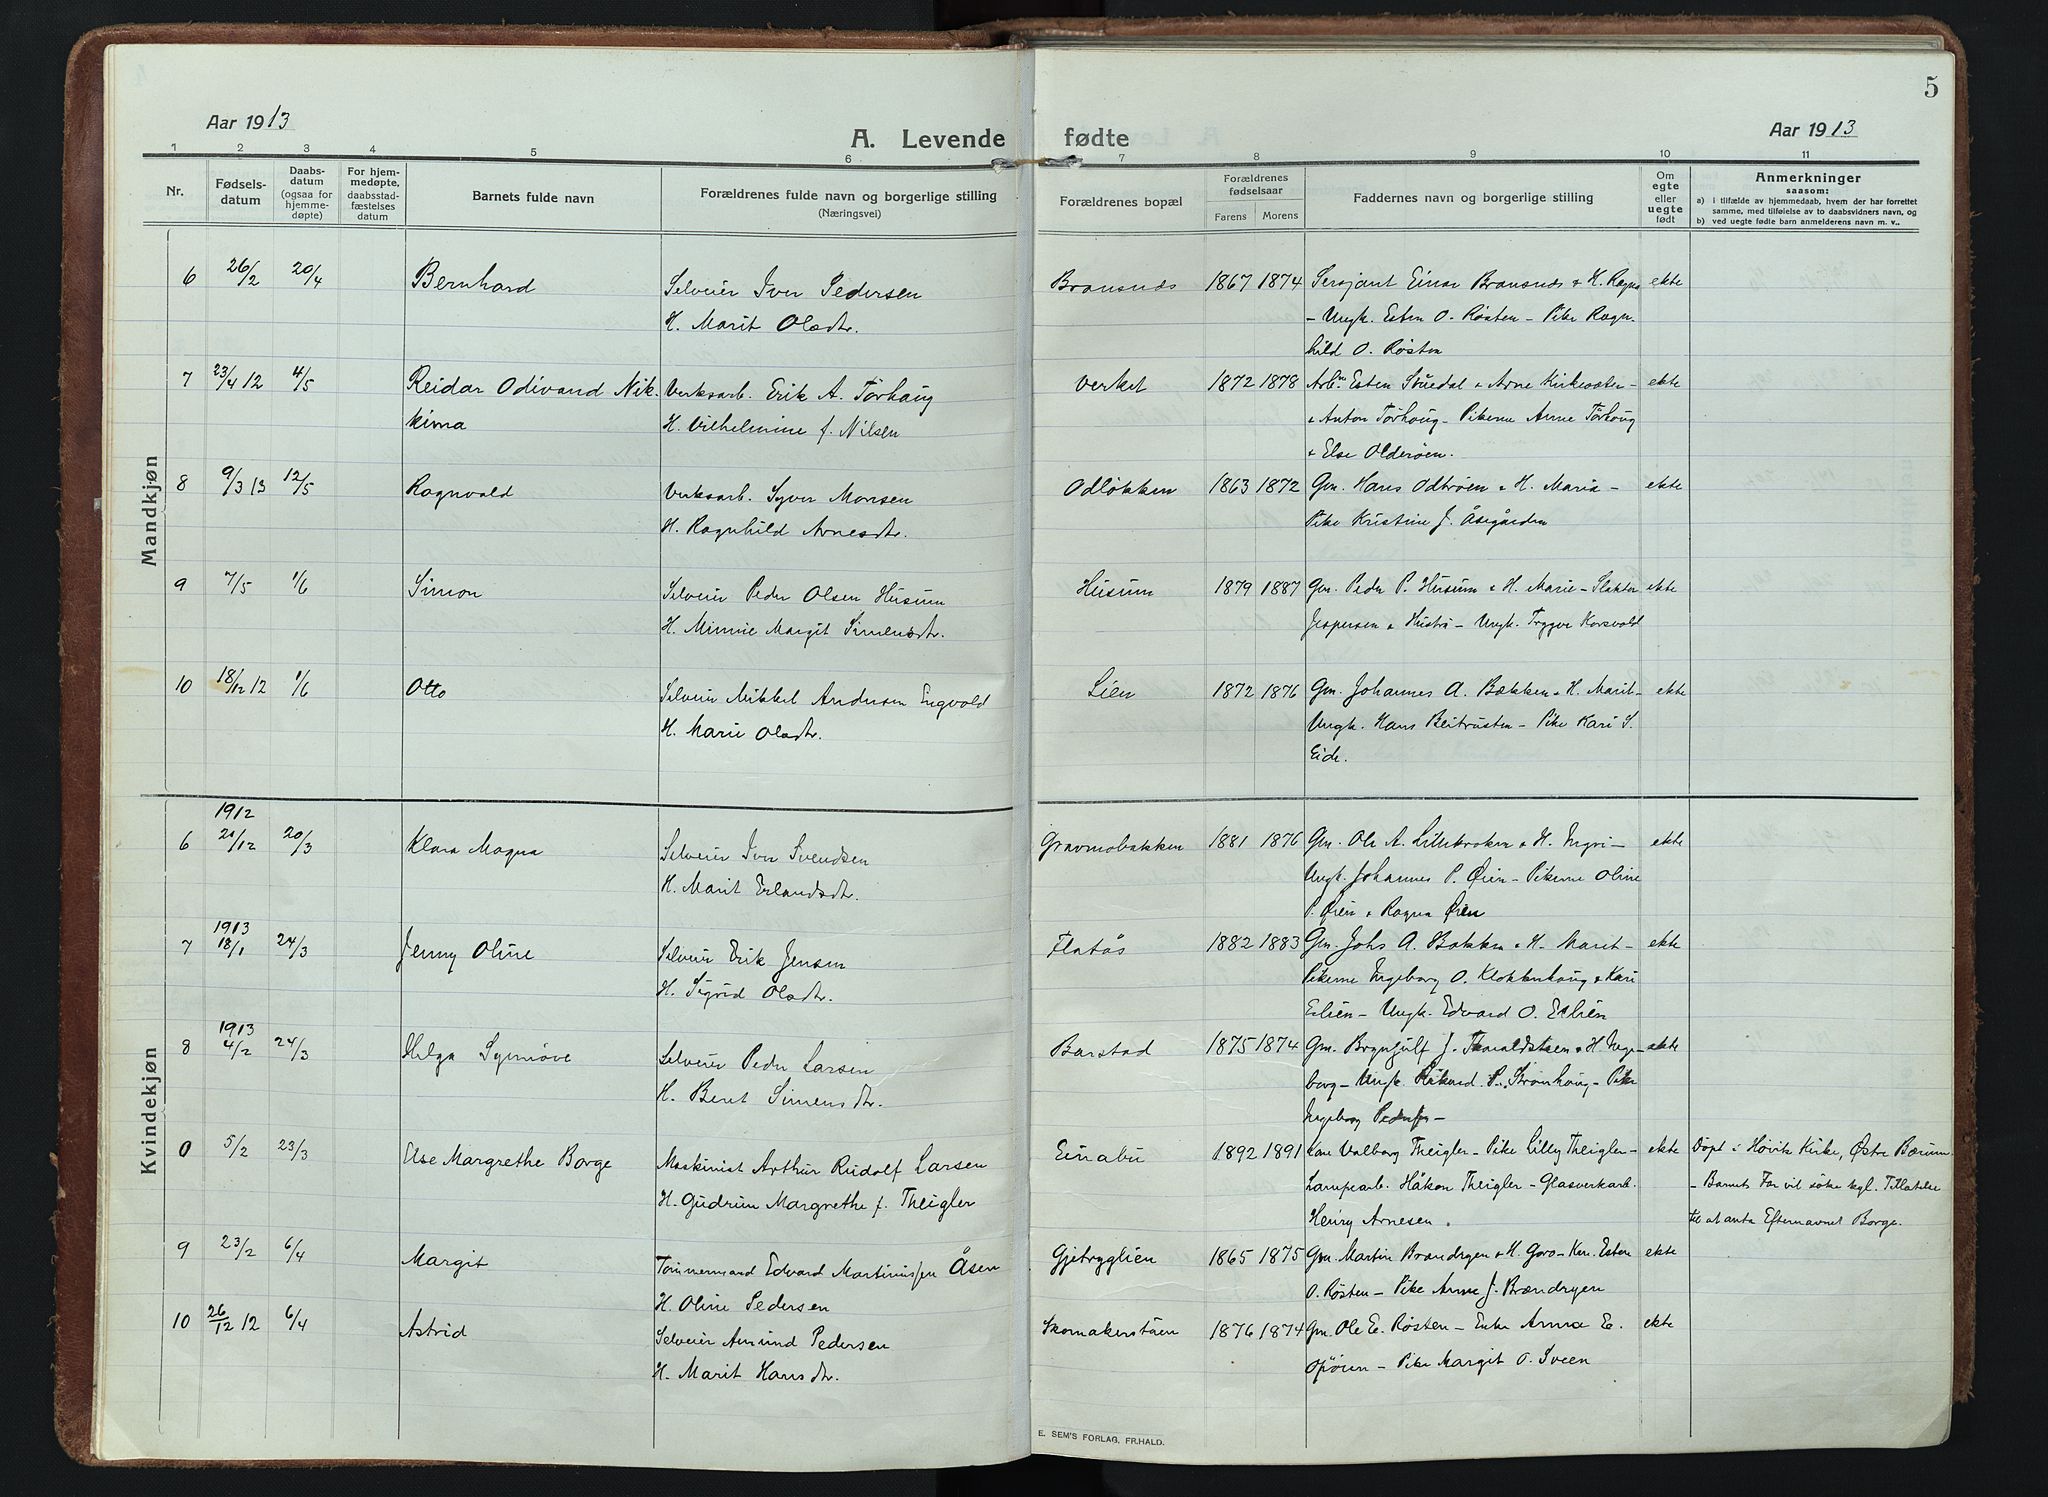 5
Aar 1913
A. Levende fødte
Aar 1913
1 2 3 4 5 6 7 8 9 10 11
Nr.
Fødsels-
datum
Daabs-
datum
(ogsaa for
hjemme-
døpte)
For hjem-
medøpte,
daabsstad-
fæstelses
datum
Barnets fulde navn
Forældrenes fulde navn og borgerlige stilling
(Næringsvei)
Forældrenes bopæl
Forældrenes
fødselsaar
Farens Morens
Faddernes navn og borgerlige stilling
Om
egte
eller
uegte
født
Anmerkninger
saasom:
a) i tilfælde av hjemmedaab, hvem der har forrettet
samme, med tilføielse av to daabsvidners navn, og
b) ved uegte fødte barn anmelderens navn m. v..
Mandkjøn
6 26/2 20/4 Bernhard Selveier Iver Pedersen Bransnes 1867 1874 Sersjant Einar Bransnes & H. Ragna ekte
H. Marit Olsdtr. – Ungk. Esten O. Røsten – Pike Ragn-
hild O. Røsten
7 23/4 12 4/5 Reidar Odivand Nik- Verksarb. Erik A. Tørhaug Verket 1872 1878 Arb. Esten & Arne – ekte
kima H. Vilhelmine f. Nilsen & Anton Tørhaug – Pikerne Anne Tørhaug
& Else Olderøen.
8 9/3 13 12/5 Ragnvald Verksarb. Syver Monsen Odløkken 1863 1872 Gm. Hans Odtrøen & H. Maria – ekte
H. Ragnhild Arnesdtr. Pike Kristine J. Åsegården
9 7/5 1/6 Simon Selveier Peder Olsen Husum Husum 1879 1887 Gm. Peder P. Husum & H. Marie – Slakter ekte
H. Minnie Margit Simensdtr. Jespersen & Hustru – Ungk. Trygve Korsvold
10 18/12 12 1/6 Otto Selveier Mikkel Andersen Engvold Lien 1872 1876 Gm. Johannes A. Bækken & H. Marit – ekte
H. Marie Olsdtr. Ungk. Hans – Pike Kari S.
Eide.
Kvindekjøn
1912
6 20/12 20/3 Klara Magna Selveier Iver Svendsen Gravmobakken 1881 1876 Gm. Ole A. Lillebroken & H. Ingri – ekte
H. Marit Erlandsdtr. Ungk. Johannes P. Øien – Pikerne Oline
P. Øien & Ragna Øien
1913
7 18/1 24/3 Jenny Oline Selveier Erik Jensen Flatås 1882 1883 Gm. Johs A. Bakken & H. Marit – ekte
H. Sigrid Olsdtr. Pikerne Ingeborg O. Klokkerhaug & Kari
Eslien – Ungk. Edvard O. Eslien
1913
8 4/2 24/3 Helga Synnøve Selveier Peder Larsen Barstad 1875 1874 Gm. Brynjulf J. Tharaldstuen & H. Inge- ekte
H. Berit Simensdtr. borg – Ungk. Håkard P. Stronhaug – Pike
Ingeborg –
0 5/2 23/3 Else Margrethe Borge Maskinist Arthur Rudolf Larsen Einabu 1892 1891 Kone Valborg Theigler – Pike Lilly Theigler – ekte Døpt i Høvik Kirke, Østre Bærum
H. Gudrun Margrethe f. Theigler Lampearb. Håkon Theigler – Glasverkarb. – Barnets Far vil søke kgl. Tillatelse
Henry Arnesen. til at anta Efternavnet Borge.
9 23/2 6/4 Margit Tømmermand Edvard Martinussen Åsen Gjetrygglien 1865 1875 Gm. Martin Brændryen & H. Goro – Kn. Esten ekte
H. Oline Pedersen O. Røsten – Pike Anne J. Brændryen
10 26/12 12 6/4 Astrid Selveier Amund Pedersen Skomakerstuen 1876 1874 Gm. Ole E. Røsten – Enke Anna E. ekte
H. Marit Hansdtr. Opøien – Pike Margit O. Sveen
E. SEM'S FORLAG, FR.HALD.